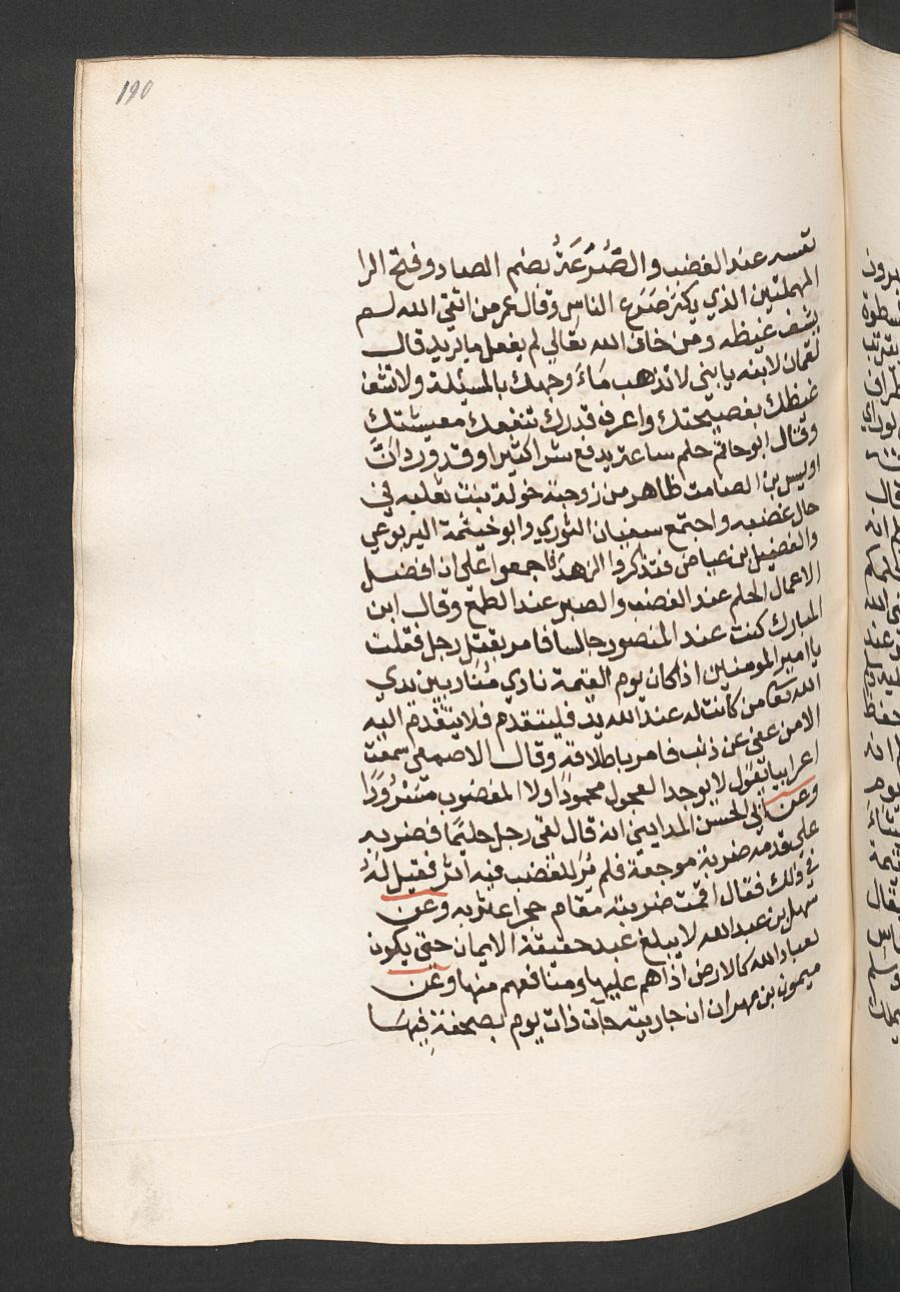 190
نفسه عند الغضب والصُّرَعَةُ بضم الصاد وفتح الرا
المهملتين الذي يكثر صَرَع الناس وقال عمر من اتقي الله لم
يشف غيظه ومن خاف الله تعالي لم يفعل ما يريد قال
لقمان لابنه يا بني لا تذهب مَاءَ وجهك بالمسيلة ولا تشف
غيظك بفصيحتك واعرف قدرك تنفعك معيشتك
وقال ابو حاتم حلم ساعة يدفع شرا كثيرا وقد ورد انّ
اويس بن الصامت ظاهر من زوجته خولة بنت ثعلبه في
حال غضبه واجتمع سفيان الثوري وابو خيثمة اليربوعي
والفضيل بن عياض فتذكروا الزهد فاجمعوا علي ان افضل
الاعمال الحلم عند الغضب والصبر عند الطمع وقال ابن
المبارك كنت عند المنصور جالسا فامر بقتل رجل فقلت
يا امير المومنين اذا كان يوم القيمة نادي مناد بين يدي
الله تعا من كانت له عند الله يد فليتقدم فلا يتقدم اليه
الا من عفي عن ذنب فامر باطلاقه وقال الاصمعي سمعت
اعرابيا يقول لا يوجد العجول محمودًا ولا المغضوب مسْرُورًا
وعن ابي الحسن المدايني انه قال لقي رجل حليمًا فضربه
علي قدمه ضربة موجعة فلم يُرَ للغضب فيه اثر فقيل لهُ
في ذلك فقال اقمت ضربته مقام حجر اعثر به وعن
سهل بن عبد الله لا يبلغ عبد حقيقة الايمان حتي يكون
لعباد الله كالارض اذاهم عليها ومنافعهم منها وعن
ميمون بن مهران ان جاريته جآت ذات يوم بصحفة فيها